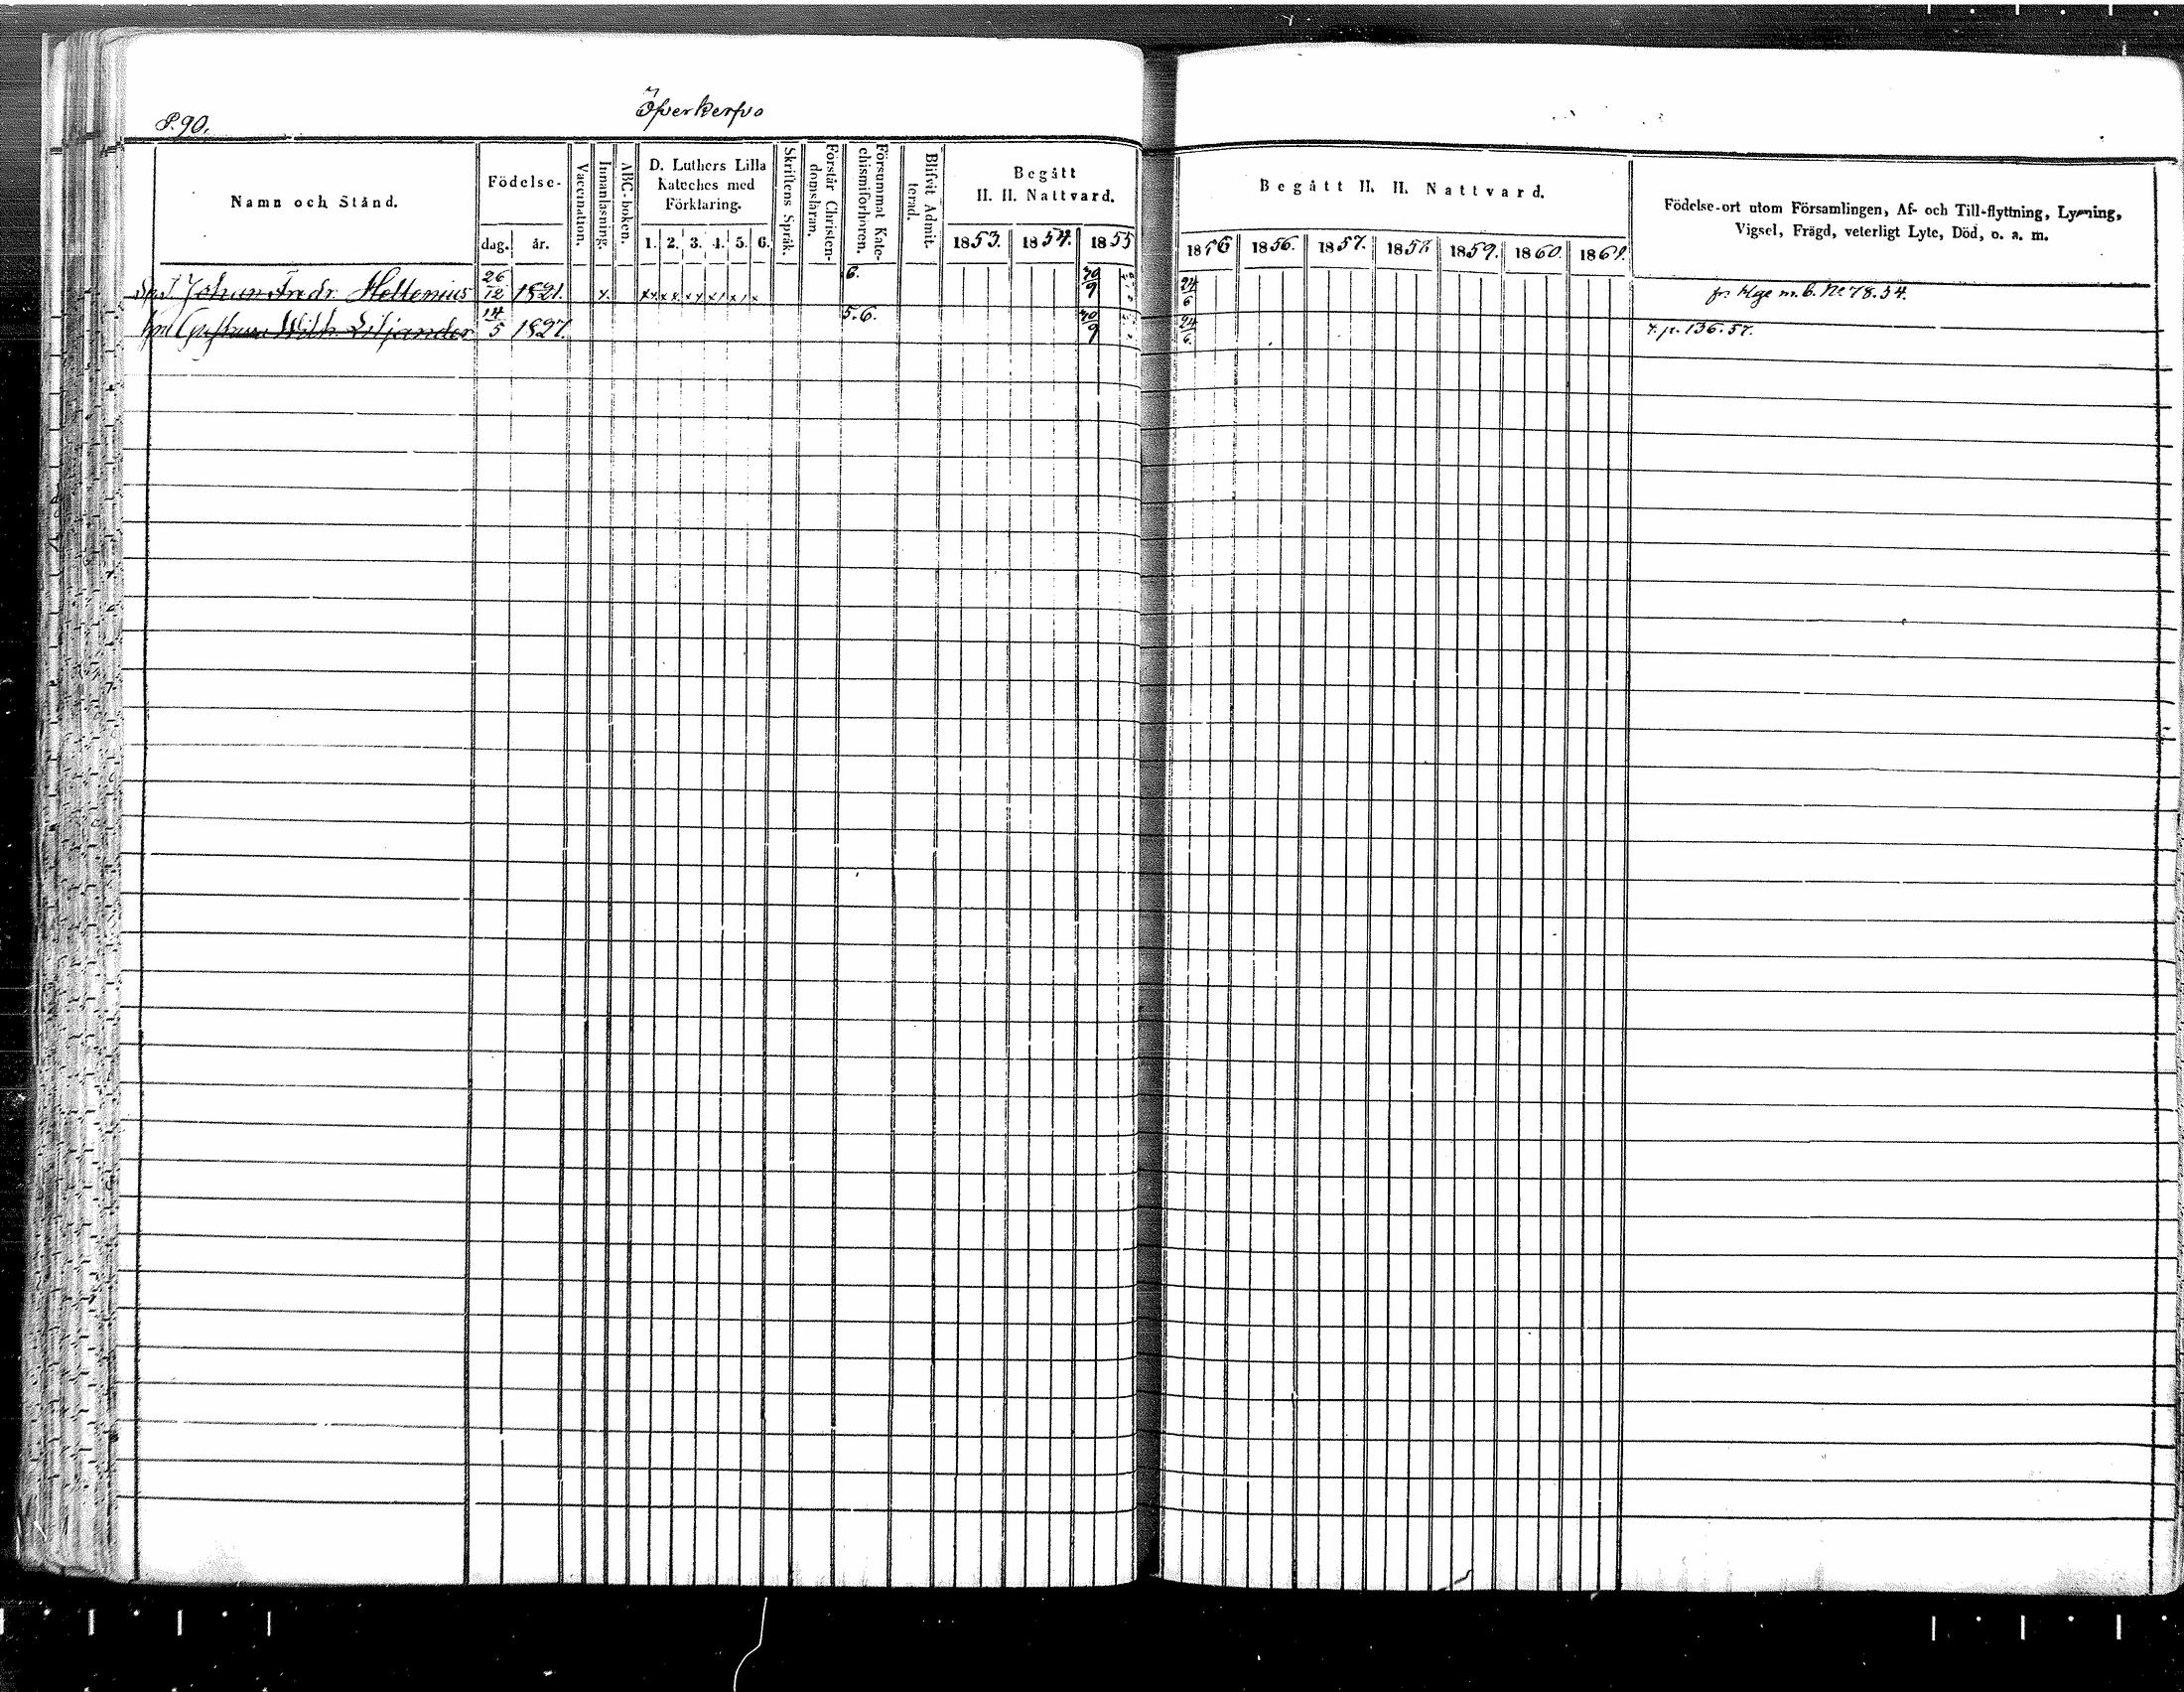 P. 90.
Öfverkerpo
Namn och Stånd.
Födelse-
dag. år.
Vaccination.
Innanläsning.
ABC-boken.
D. Luthers Lilla
Kateches med
Förklaring.
1. 2. 3. 4. 5. 6.
Skriftens Språk.
Förstår Christen-
domsläran.
Försummat Kate-
chismiförhören.
Blifvit Admit-
terad.
Begått
H. H. Nattvard.
1853. 1854. 1855
Begått H. H. Nattvard.
1856 1856. 1857. 1858. 1859. 1860. 1861.
Födelse-ort utom Församlingen, Af- och Till-flyttning, Lysning,
Vigsel, Frägd, veterligt Lyte, Död, o. a. m.
Johan Fredr. Hellenius 26/12 1821. x. 6. 30/9 24/6 m. b. No 78. 54.
Wilh. Liljander 14/5 1827. 5. 6. 30/9 24/6 p. 136. 57.